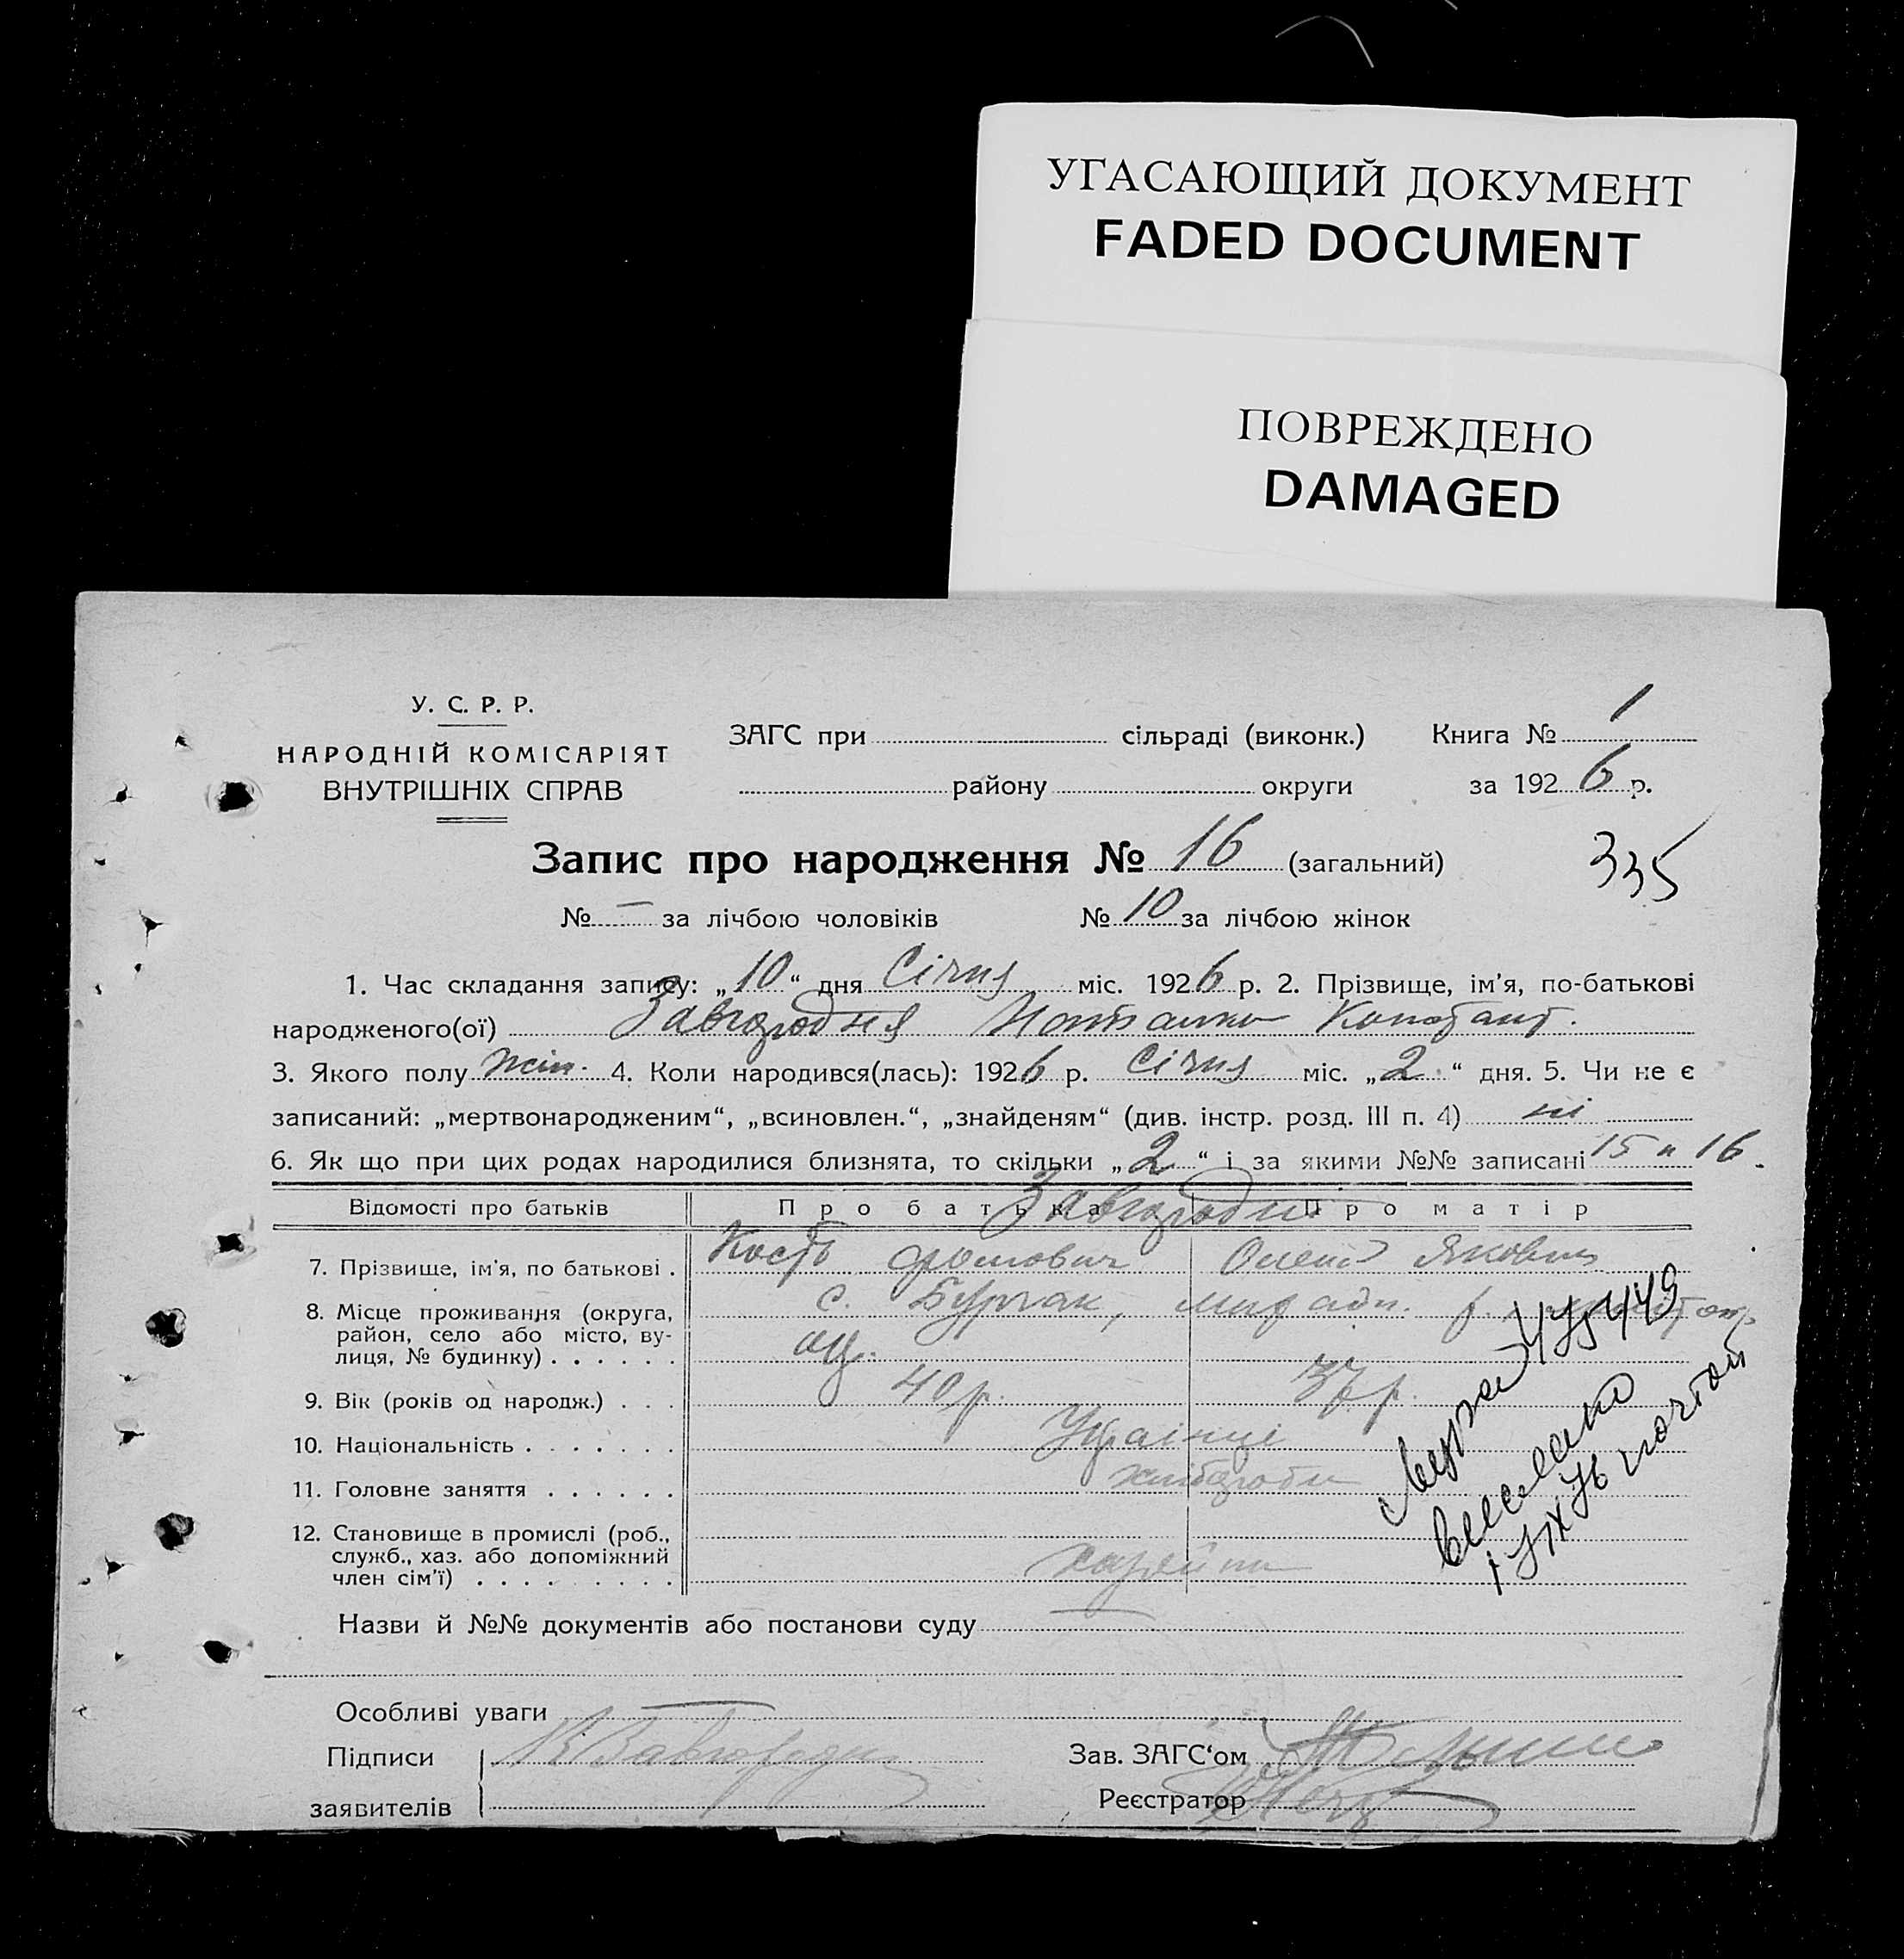 УГАСАЮЩИЙ ДОКУМЕНТ
FADED DOCUMENT
ПОВРЕЖДЕНО
DAMAGED
У. С. Р. Р.
НАРОДНІЙ КОМІСАРІЯТ
ВНУТРІШНІХ СПРАВ
ЗАГС при сільраді (виконк.) Книга № 1
району округи за 1926 р.
Запис про народження № 16 (загальний) 335
№ — за лічбою чоловіків № 10 за лічбою жінок
1. Час складання запису: „10“ дня Січня міс. 1926 р. 2. Прізвище, ім'я, по-батькові
народженого(ої) Завгородня Констант.
3. Якого полу жін. 4. Коли народився(лась): 1926 р. Січня міс. „2“ дня. 5. Чи не є
записаний: „мертвонародженим“, „всиновлен.“, „знайденям“ (див. інстр. розд. III п. 4) ні
6. Як що при цих родах народилися близнята, то скільки „2“ і за якими №№ записані 15 и 16.
Відомості про батьків Про батька Про матір
Завгородни
7. Прізвище, ім'я, по батькові . Кость Олена
8. Місце проживання (округа, с.
район, село або місто, ву-
лиця, № будинку) . . . . . .
9. Вік (років од народж.) . . . 40 р. 37 р.
10. Національність . . . . . . . Українці
11. Головне заняття . . . . . . хлібороби
12. Становище в промислі (роб.,
служб., хаз. або допоміжний
член сім'ї) . . . . . . . . .
Назви й №№ документів або постанови суду —
Особливі уваги —
Підписи Завгородн Зав. ЗАГС‘ом
заявителів Реєстратор